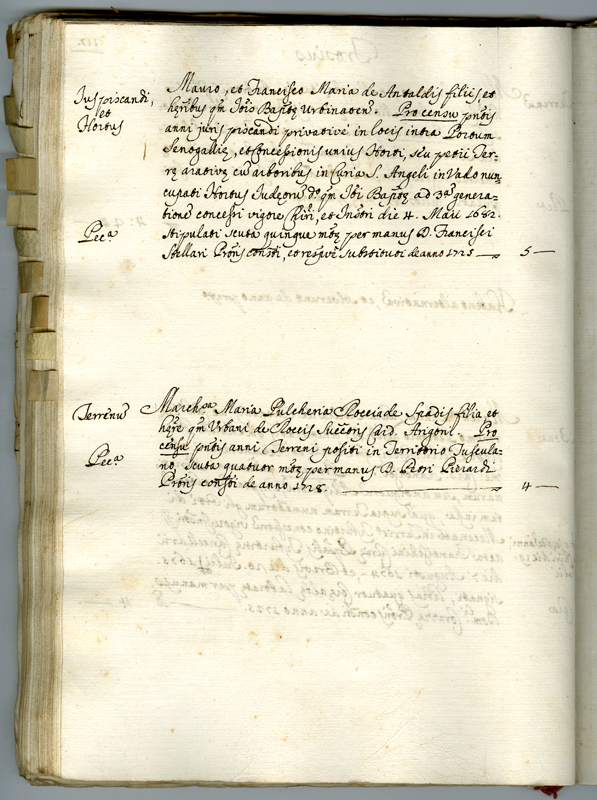 Jus piscandi,
et
Hortus
Mauro, et Francisco Maria de Antaldis filiis, et
hęribus qm̄ Jōīs Bapt̄ę Urbinaten̄. Pro censu pn̄tis
anni juris piscandi privativè in locis intra Portum
Senogallię, et Concessionis unius Horti, seu petii Ter-
rę arativę cū arboribus in Curia S. Angeli in Vado nun-
cupati Hortus Judęorū d.º qm̄ Jōī Bapt̄ę ad 3.ᵃᵐ genera-
tionē concessi vigore Chirī, et Inst̄ri die 4. Maii 1682.
Pec.ᵃ
Stipulati scuta quinque mt̄ę per manus D. Francisci
Stellari Pron̄is constī, eo respivè substitutoi de anno 1725 — 5 —
Terrenū
March.ⁿᵃ Maria Pulcheria Rocci de Spadis filia et
hęre qm̄ Urbani de Rocciis Succ̄oris Card. Arigoni. Pro
censu pn̄tis anni Terreni positi in Territorio Tuscula-
Pec.ᵃ
no, scuta quatuor mt̄ę per manus D. Petri Pierardi
Pron̄is constī de anno 1728. — 4 —